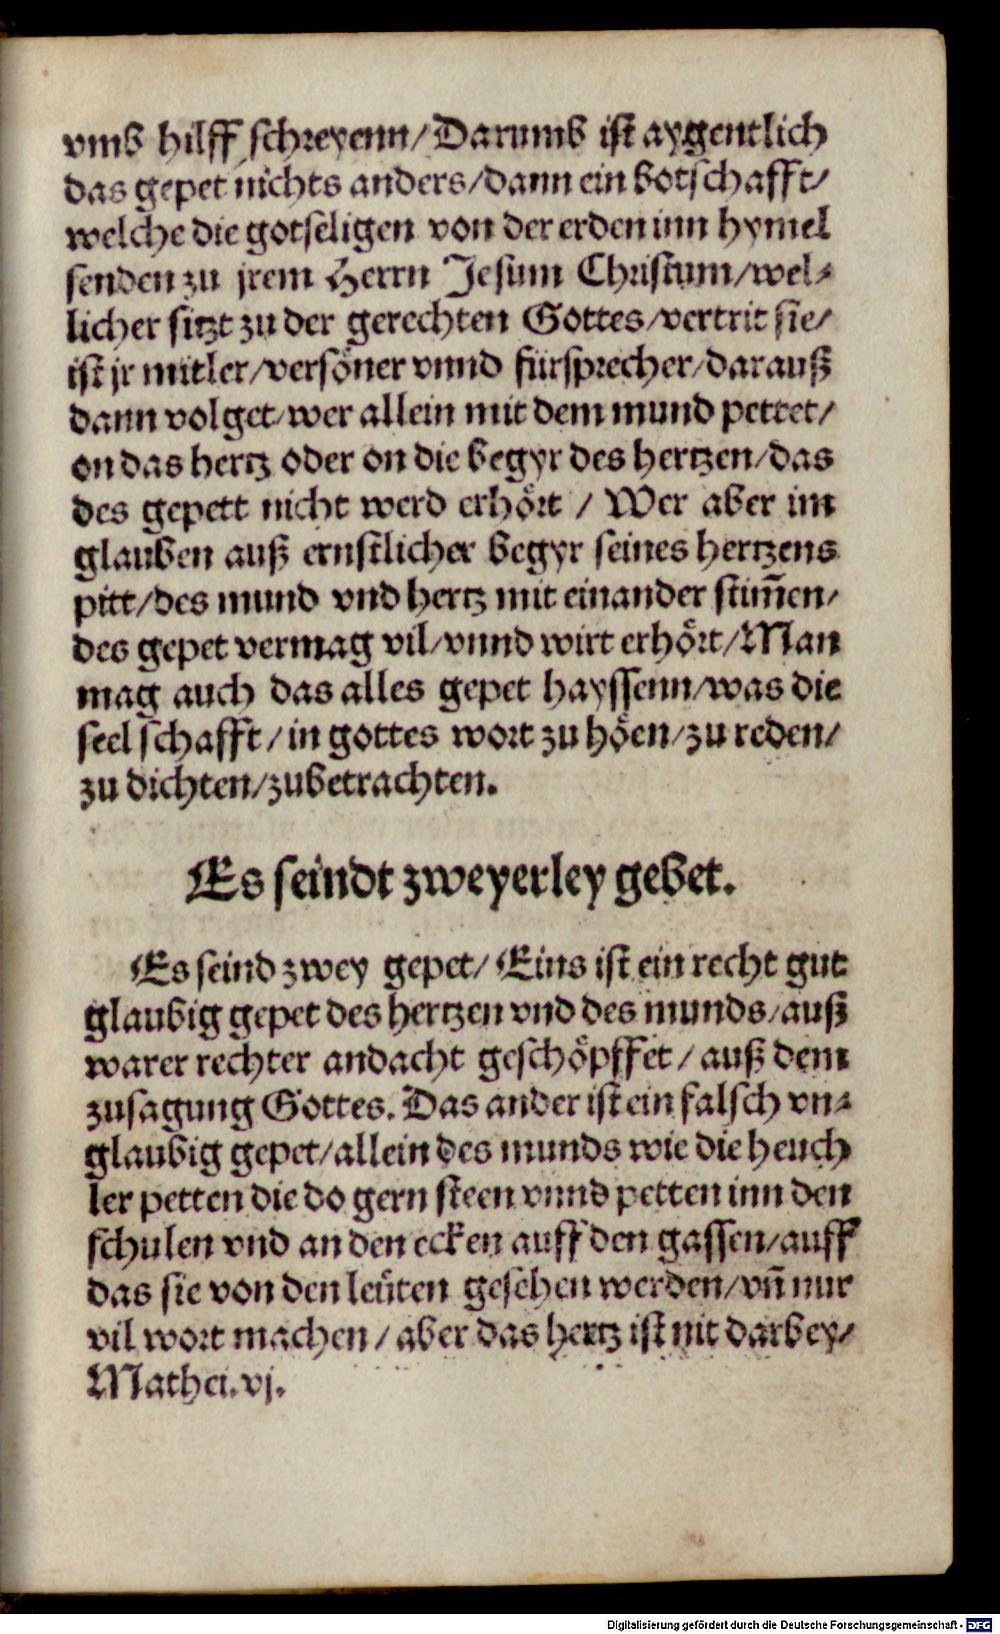 vmb hilff schreyenn/Darumb ist aygentlich
das gepet nichts anders/dann ein botschafft/
welche die gotseligen von der erden inn hymel
senden zu jrem Herrn Jesum Christum/wel⸗
licher sitzt zu der gerechten Gottes/vertrit sie/
ist jr mitler/versöner vnnd fürsprecher/darauß
dann volget/wer allein mit dem mund pettet/
on das hertz oder on die begyr des hertzen/das
des gepett nicht werd erhört / Wer aber im
glauben auß ernstlicher begyr seines hertzens
pitt/des mund vnd hertz mit einander stim̃en/
des gepet vermag vil/vnnd wirt erhört/Man
mag auch das alles gepet hayssenn/was die
seel schafft/in gottes wort zu höen/zu reden/
zu dichten/zubetrachten.
Es seindt zweyerley gebet.
Es seind zwey gepet/ Eins ist ein recht gut
glaubig gepet des hertzen vnd des munds/auß
warer rechter andacht geschöpffet / auß dem
zusagung Gottes. Das ander ist ein falsch vn⸗
glaubig gepet/allein des munds wie die heuch
ler petten die do gern steen vnnd petten inn den
schulen vnd an den ecken auff den gassen/auff
das sie von den leüten gesehen werden/vñ nur
vil wort machen / aber das hertz ist nit darbey/
Mathei.vj.
Digitalisierung gefördert durch die Deutsche Forschungsgemeinschaft - DFG